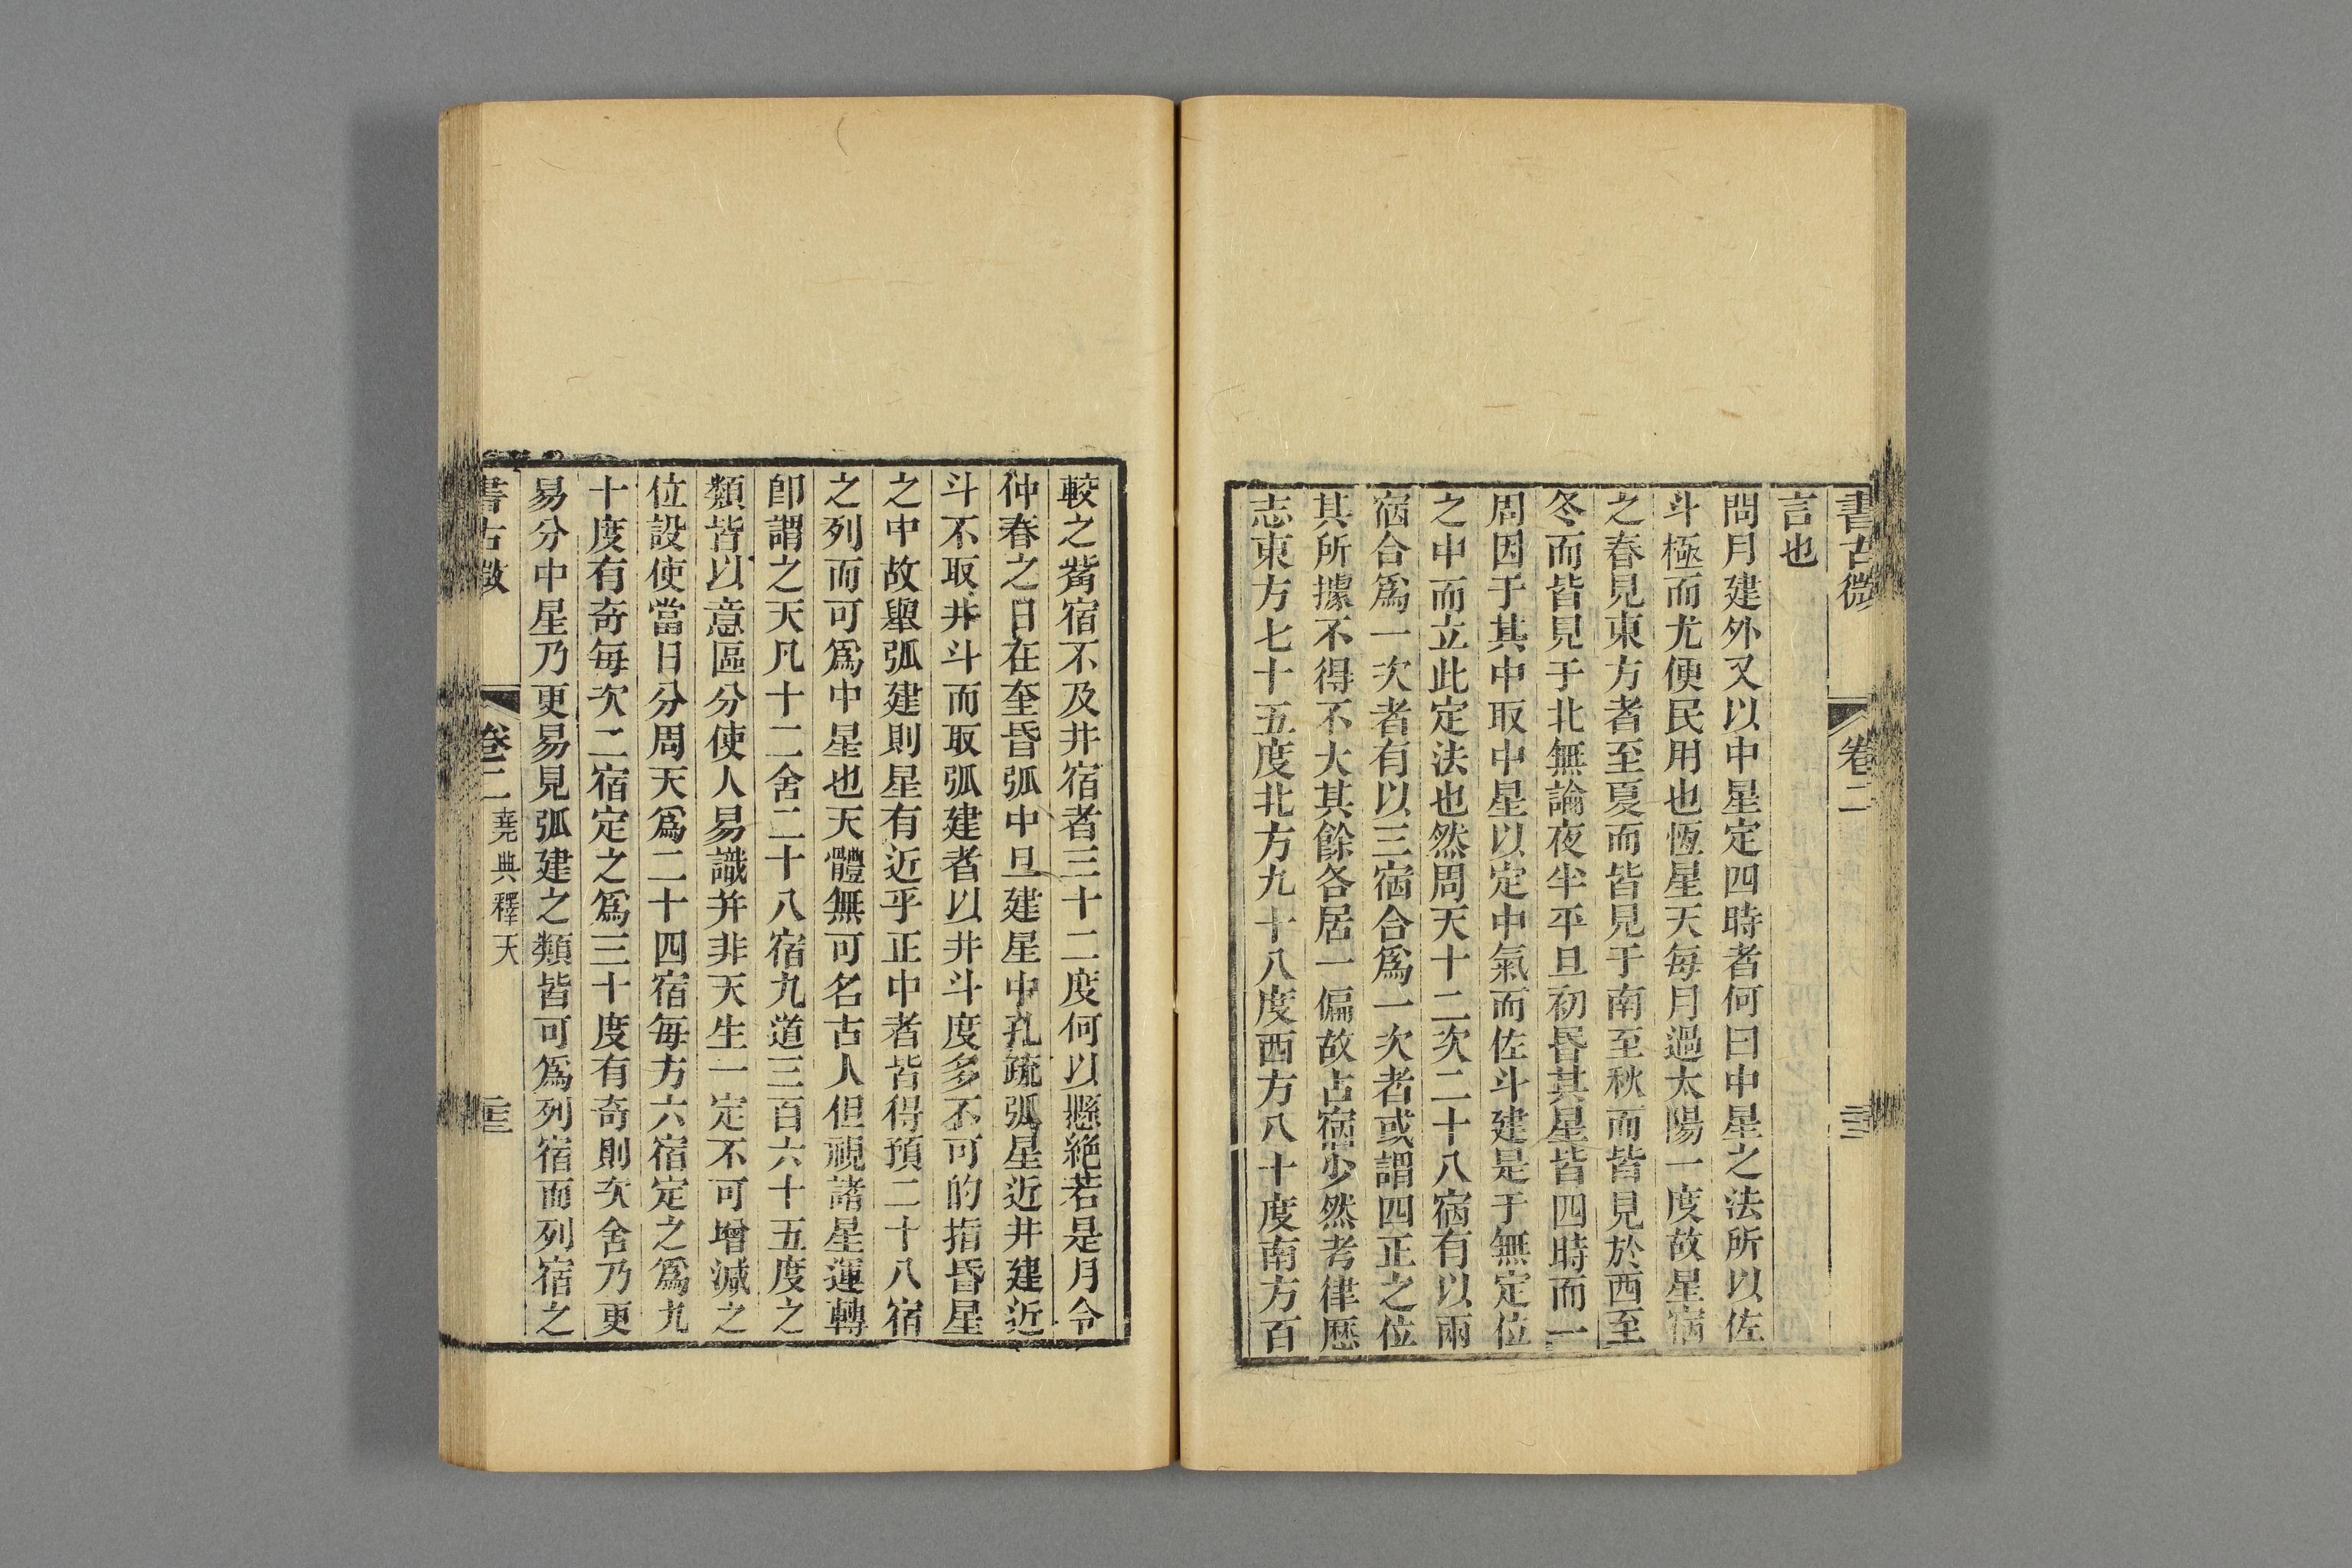 書古微 卷二 三
言也
問月建外又以中星定四時者何曰中星之法所以佐
斗極而尤便民用也恆星天每月過太陽一度故星宿
之春見東方者至夏而皆見于南至秋而皆見於西至
冬而皆見于北無論夜半平旦初昏其星皆四時而一
周因于其中取中星以定中氣而佐斗建是于無定位
之中而立此定法也然周天十二次二十八宿有以兩
宿合爲一次者有以三宿合爲一次者或謂四正之位
其所據不得不大其餘各居一偏故占宿少然考律厯
志東方七十五度北方九十八度西方八十度南方百
較之觜宿不及井宿者三十二度何以懸絶若是月令
仲春之日在奎昏弧中旦建星中孔疏弧星近井建近
斗不取井斗而取弧建者以井斗度多不可的指昏星
之中故舉弧建則星有近乎正中者皆得預二十八宿
之列而可爲中星也天體無可名古人但視諸星運轉
卽謂之天凡十二舍二十八宿九道三百六十五度之
類皆以意區分使人易識并非天生一定不可增減之
位設使當日分周天爲二十四宿每方六宿定之爲九
十度有奇每次二宿定之爲三十度有奇則次舍乃更
易分中星乃更易見弧建之類皆可爲列宿而列宿之
書古微 卷二 堯典釋天